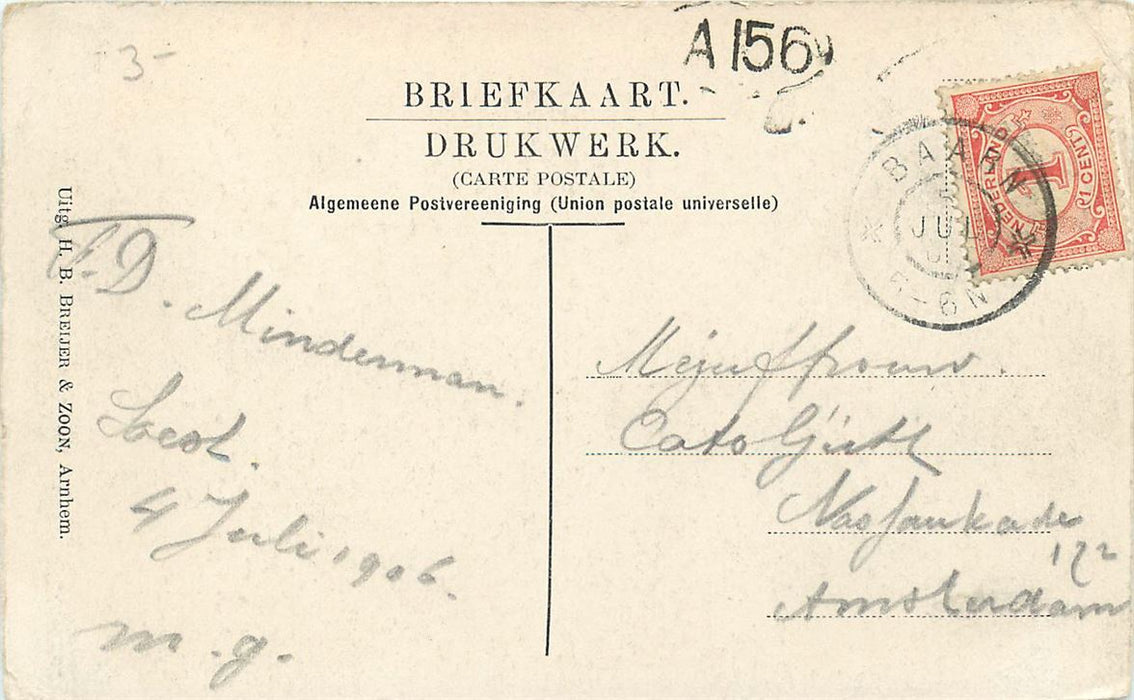 3-
A 156
BRIEFKAART.
DRUKWERK.
(CARTE POSTALE)
Algemeene Postvereeniging (Union postale universelle)
NEDERLAND
1
1 CENT
BAARN
JUL
6-8N
Uitg. H. B. BREIJER & ZOON, Arnhem.
F. D. Minderman.
Soest.
4 Juli 1906.
m.g.
Mejuffrouw.
Cato Gütl
Nassaukade
172
Amsterdam